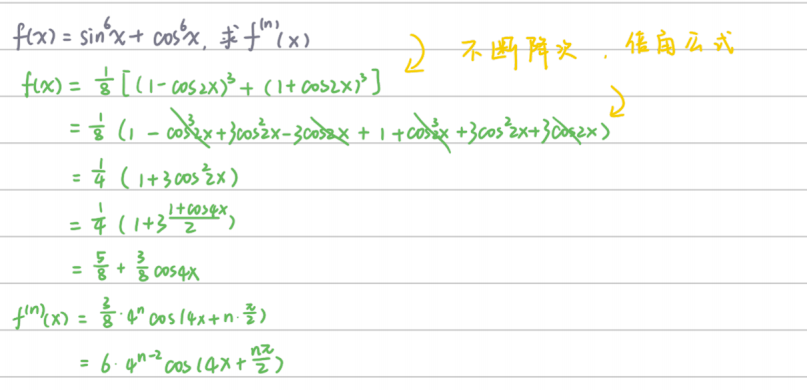 f(x) = sin⁶x + cos⁶x, 求 f⁽ⁿ⁾(x)
不断降次，倍角公式
f(x) = 1/8 [(1-cos2x)³ + (1+cos2x)³]
= 1/8 (1 - cos³2x + 3cos²2x - 3cos2x + 1 + cos³2x + 3cos²2x + 3cos2x)
= 1/4 (1+3cos²2x)
= 1/4 (1+3 (1+cos4x)/2)
= 5/8 + 3/8 cos4x
f⁽ⁿ⁾(x) = 3/8 · 4ⁿ cos(4x + n · π/2)
= 6 · 4ⁿ⁻² cos(4x + nπ/2)